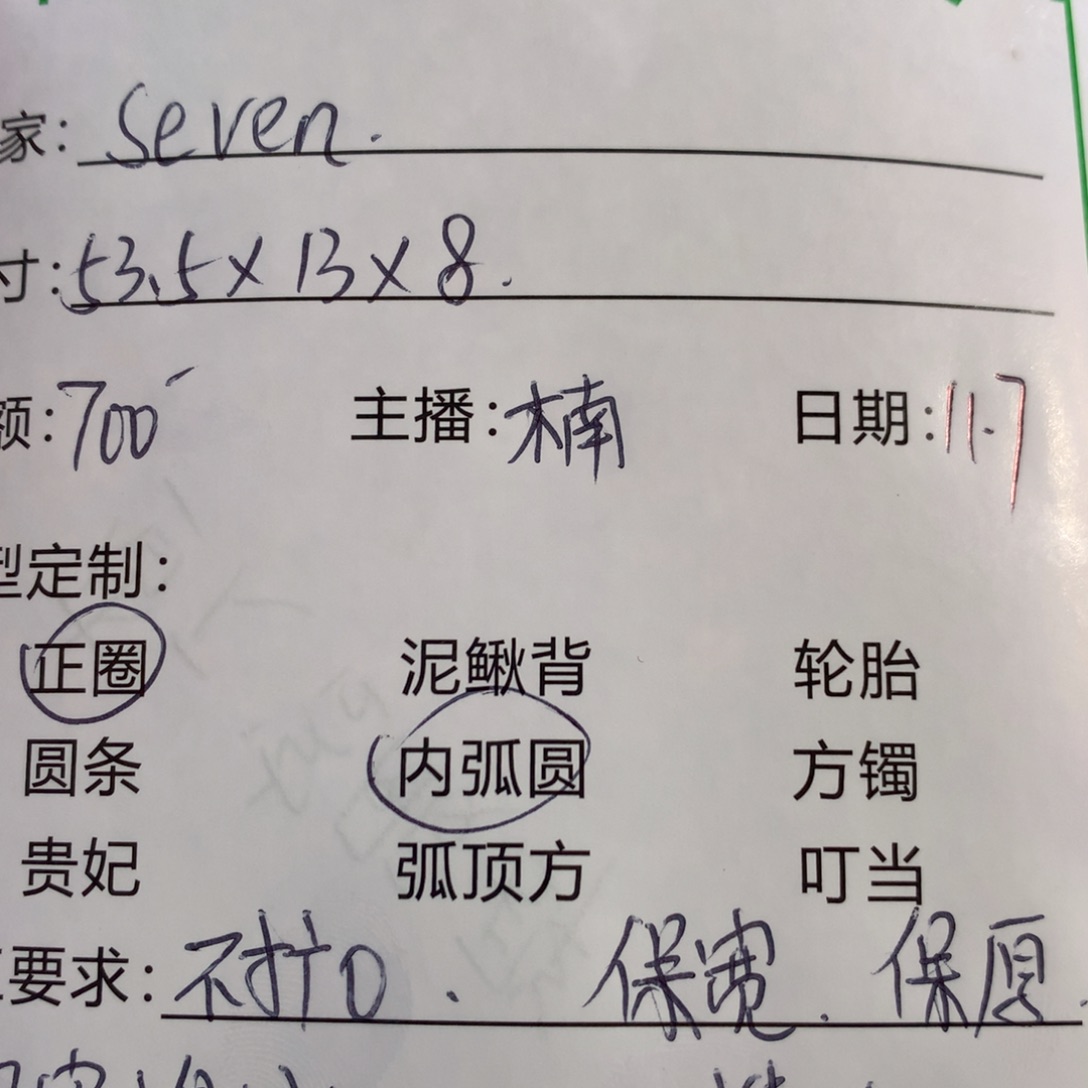 家: seven.
寸: 53.5×13×8.
额: 700 主播: 楠 日期: 11.7
型定制:
正圈 泥鳅背 轮胎
圆条 内弧圆 方镯
贵妃 弧顶方 叮当
要求: 不扩口. 保宽. 保厚.